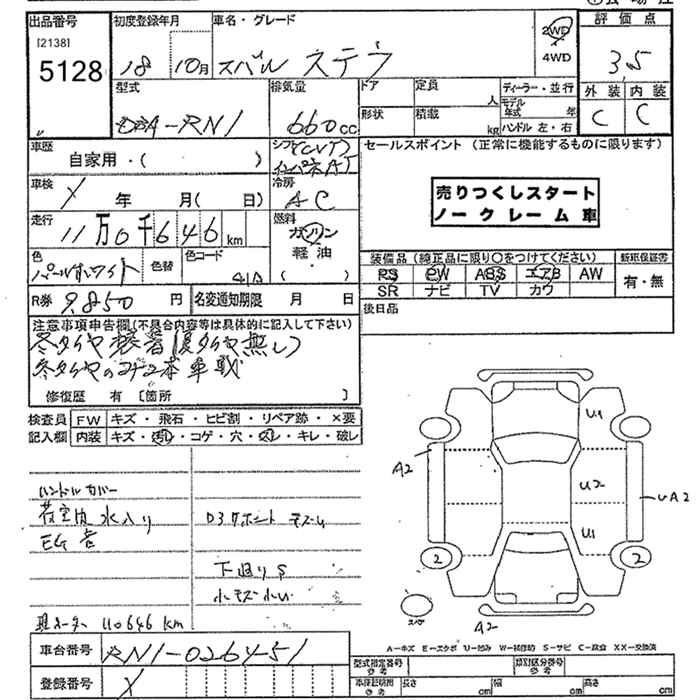 出品番号 初度登録年月 車名・グレード 評価点
[2138]
5128 18 10月 スバル ステラ 2WD
4WD
3,5
型式 排気量 ドア 定員 人 ディーラー・並行
外装 内装
DBA-RN1 660cc 形状 積載 kg モデル年式 年
ハンドル 左・右
C C
車歴 シフト セールスポイント (正常に機能するものに限ります)
自家用・( ) (CVT) インパネAT
車検 冷房
X 年 月( 日) AC
売りつくしスタート
ノークレーム車
走行 燃料
11万0千646km ガソリン
軽油
( )
色 色替 色コード
パールホワイト 41A
装備品 (純正品に限り〇をつけてください) 新車保証書
PS PW ABS エアB AW 有・無
SR ナビ TV カワ
R券 9,850円 名変通知期限 月 日 後日品
注意事項申告欄(不具合内容等は具体的に記入して下さい)
冬タイヤ装着(夏タイヤ無し)
冬タイヤの
本車載
修復歴 有 [箇所 ]
検査員 FW キズ・飛石・ヒビ割・リペア跡・×要
記入欄 内装 キズ・汚れ・コゲ・穴・・キレ・破レ
U1
A2
ハンドルカバー
U2
UA2
荷室内水入り
EG音
U1
下廻りS
小キズ小凹
2 2
スペア
A2
110646km
車台番号 RN1-026451
A-キズ E-エクボ U-凹み W-補修跡 S-サビ C-腐食 XX-交換済
登録番号 X
型式指定番号 参考 類別区分番号 参考
車体寸法 参考 長さ cm 幅 cm 高さ cm